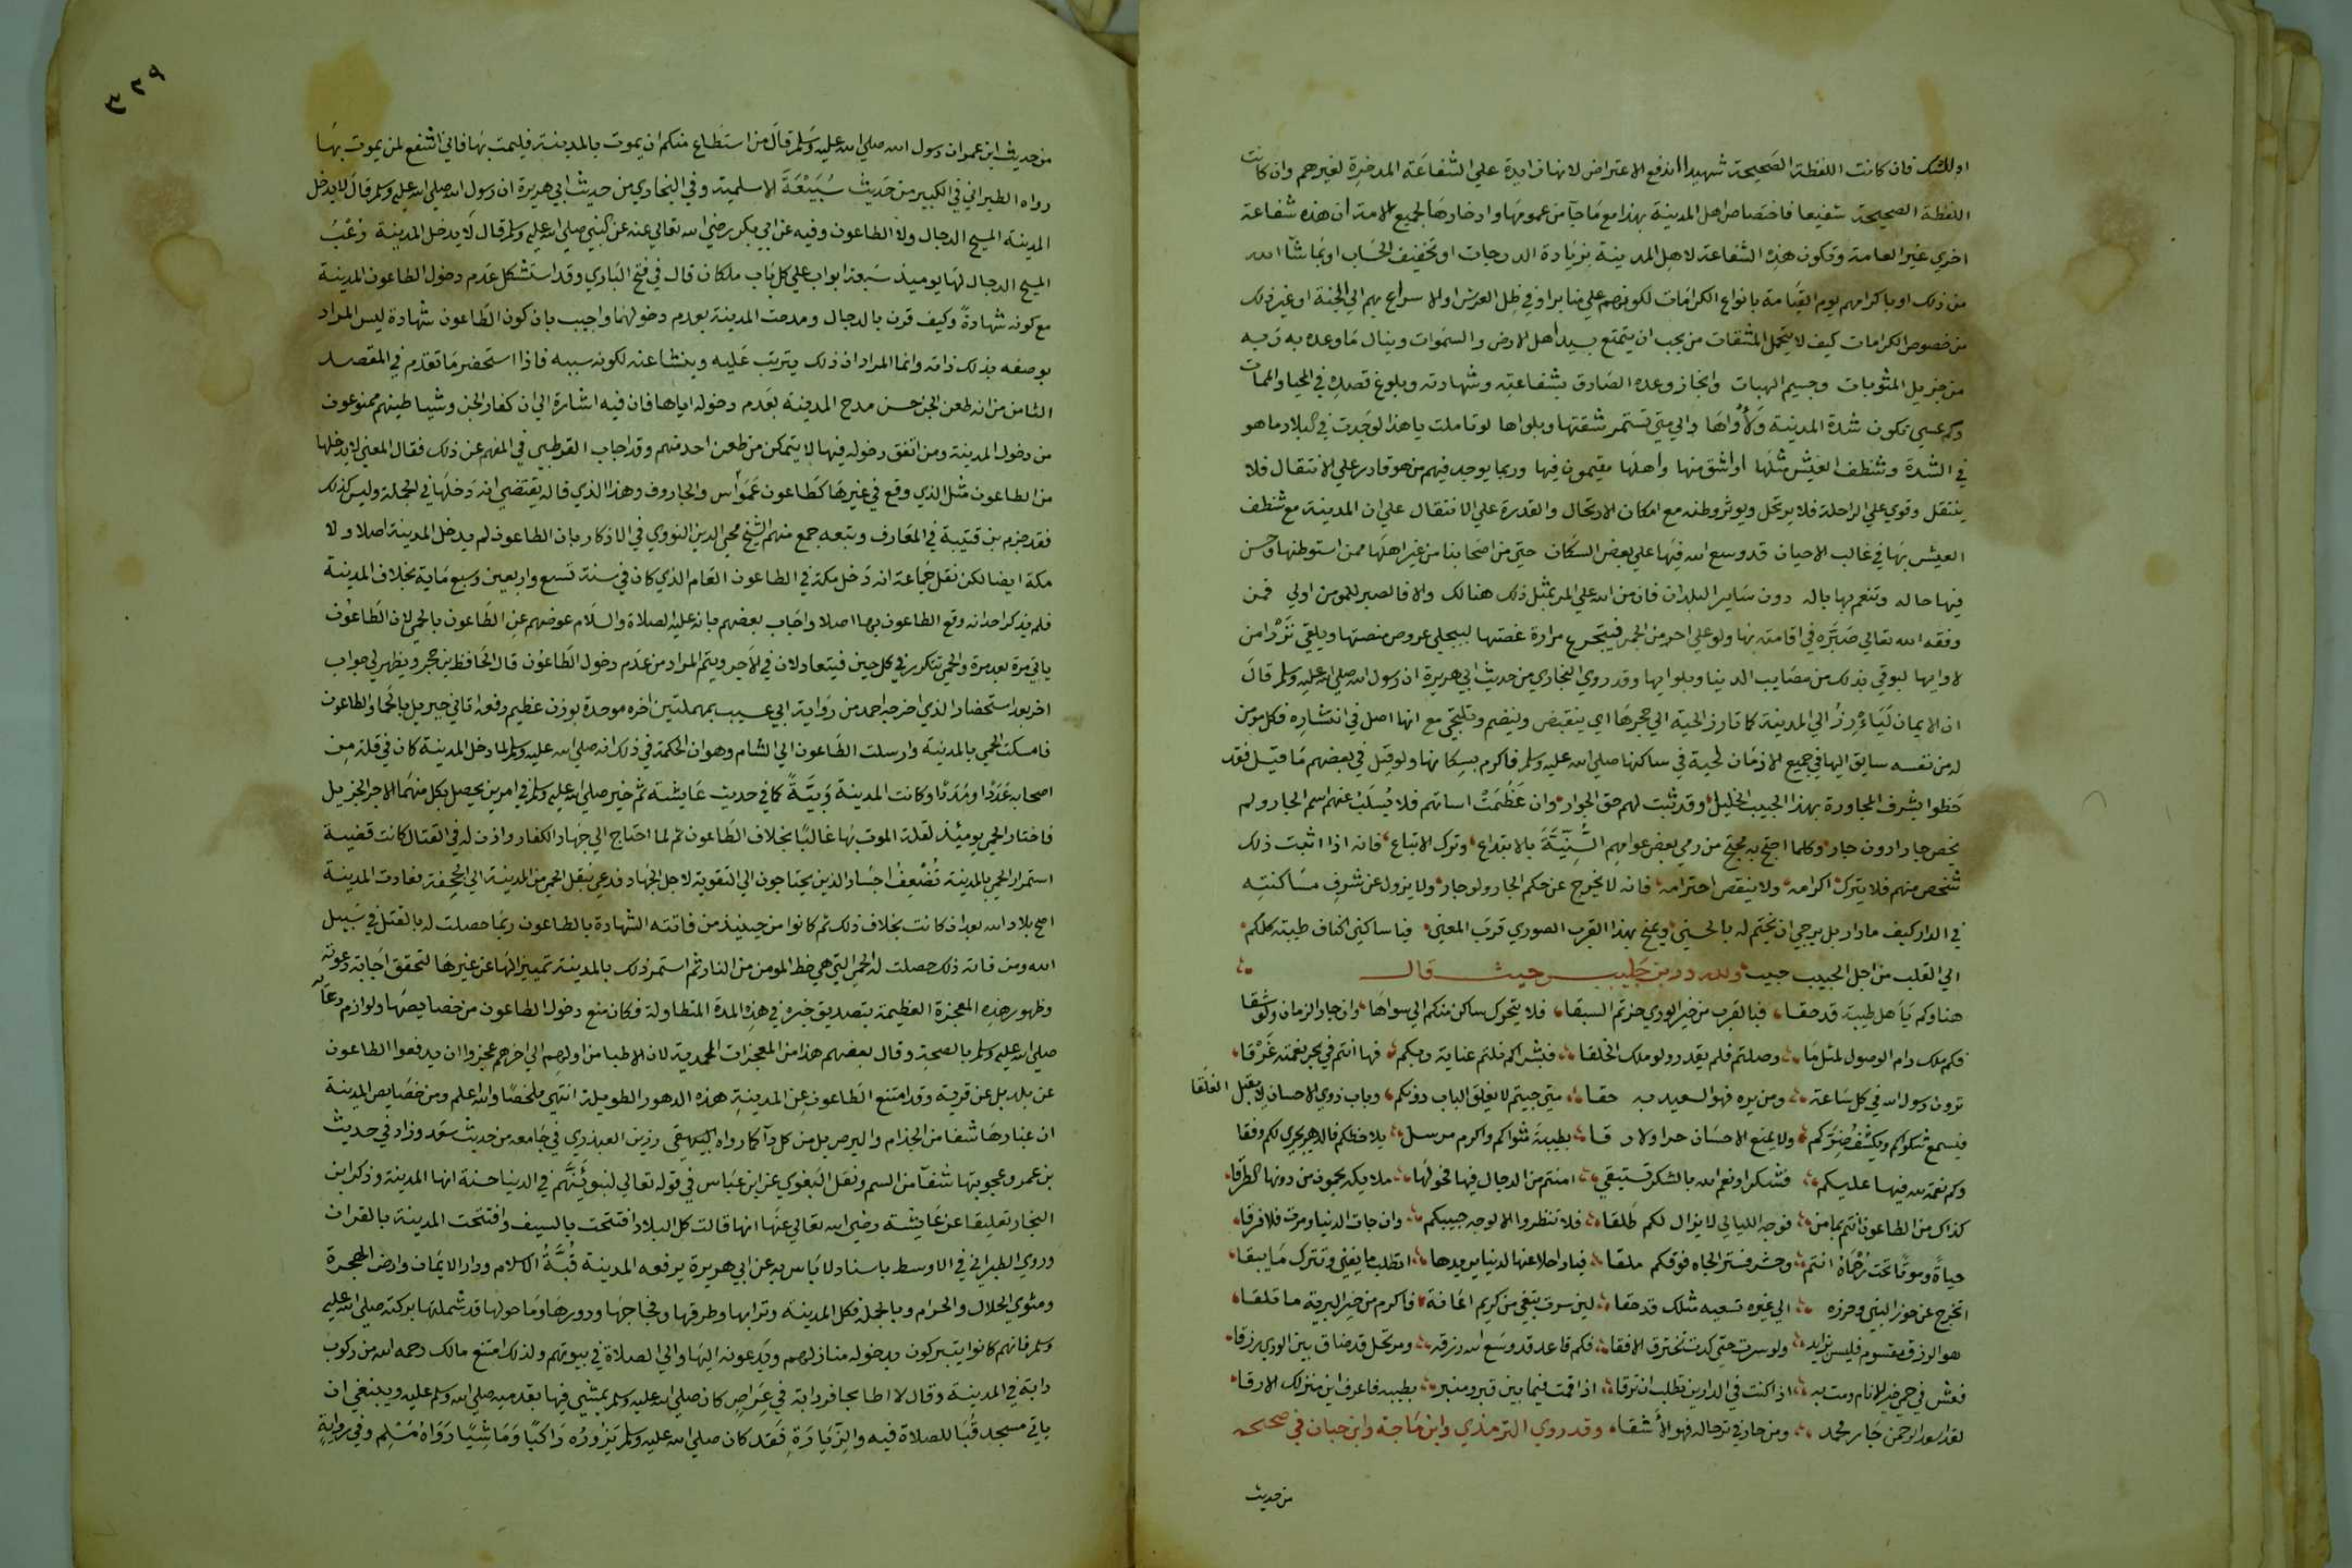 او للشك فان كانت اللفظة الصحيحة شهيدا اندفع الاعتراض لانها زايدة علي الشفاعة المدخرة لغيرهم وان كانت
اللفظة الصحيحة شفيعا فاختصاص اهل المدينة بهذا مع ما جآ من عمومها وادخارها لجميع الامة ان هذه شفاعة
اخري غير العامة وتكون هذه الشفاعة لاهل المدينة بزيادة الدرجات او تخفيف الحساب او بما شآ الله
من ذلك او باكرامهم يوم القيامة بانواع الكرامات لكونهم علي منابر او في ظل العرش او الاسراع بهم الي الجنة او غير ذلك
من خصوص الكرامات كيف لا يتحمل المشقات من يحب ان يتمتع بسيد اهل الارض والسموات وينال ما وعده به ربه
من جزيل المثوبات وجسيم الهبات وانجاز وعده الصادق بشفاعته وشهادته وبلوغ قصده في المحيا والممات
وكم عسي تكون شدة المدينة ولاواها والي متي تستمر مشقتها وبلواها لو تاملت يا هذا لوجدت في البلاد ما هو
في الشدة وشظف العيش مثلها او اشق منها واهلها مقيمون فيها وربما يوجد فيهم من هو قادر علي الانتقال فلا
ينتقل وقوي علي الراحلة فلا يرتحل ويوثر وطنه مع امكان الارتحال والقدرة علي الانتقال علي ان المدينة مع شظف
العيش بها في غالب الاحيان قد وسع الله فيها علي بعض السكان حتي من اصحابنا من غير اهلها ممن استوطنها وحسن
فيها حاله وتنعم بها باله دون ساير البلدان فان من الله علي المر بمثل ذلك هنالك والا فالصبر للمومن اولي فمن
وفقه الله تعالي صبره في اقامته بها ولو علي احر من الجمر فيتجرع مرارة غصتها ليجتلي عروس منصتها ويلقي نزرا من
لاوايها ليوقي بذلك من مصايب الدنيا وبلوايها وقد روي البخاري من حديث ابي هريرة ان رسول الله صلي الله عليه وسلم قال
ان الايمان ليارز الي المدينة كما تارز الحية الي جحرها اي ينقبض وينضم ويلتجي مع انها اصل في انتشاره فكل مومن
له من نفسه سايق اليها في جميع الازمان لحبه في ساكنها صلي الله عليه وسلم فاكرم بسكانها ولو قيل في بعضهم ما قيل فقد
حظوا بشرف المجاورة بهذا الحبيب الخليل وقد ثبت لهم حق الجوار وان عظمت اساتهم فلا يسلب عنهم اسم الجار ولم
يخص جارا دون جار وكلما احتج به محتج من رمي بعض عوامهم السنية بالابتداع وترك الاتباع فانه اذا اثبت ذلك
شخص منهم فلا يترك اكرامه ولا ينقص احترامه فانه لا يخرج عن حكم الجار ولو جار ولا يزول عن شرف مساكنته
في الدار كيف ما دار بل يرجي ان يختم له بالحسني ويمنح بهذا القرب الصوري قرب المعني فيا ساكني اكناف طيبة كلكم
الي القلب من اجل الحبيب حبيب ولله در بن خطيب حيث قال
هناوكم يا اهل طيبة قد حقا فبالقرب من خير الوري حزتم السبقا فلا يتحرك ساكن منكم الي سواها وان جار الزمان ولو شقا
فكم ملك رام الوصول لمثل ما وصلتم فلم يقدر ولو ملك الخلقا فبشراكم نلتم عناية ربكم فها انتم في بحر نعمته غرقا
ترون رسول الله في كل ساعة ومن يره فهو السعيد به حقا متي جيتم لا يغلق الباب دونكم وباب ذوي الاحسان لا يقبل الغلقا
فيسمع شكواكم ويكشف ضركم ولا يمنع الاحسان حرا ولا رقا بطيبة مثواكم واكرم مرسل يلاحظكم فالدهر يجري لكم وفقا
وكم نعمة لله فيها عليكم فشكرا ونعم الله بالشكر تستبقي امنتم من الدجال فيها فحولها ملايكة يحمون من دونها الطرقا
كذاك من الطاعون انتم بمامن فوجه الليالي لا يزال لكم طلقا فلا تنظروا الا لوجه حبيبكم وان جات الدنيا ومرت فلا فرقا
حياة وموتا تحت رحماه انتم وحشر فستر الجاه فوقكم ملقا فيا راحلا عنها لدنيا يريدها اتطلب ما يفني وتترك ما يبقا
اتخرج عن حوز النبي وحرزه الي غيره تسفيه مثلك قد حقا لين سرت تبغي من كريم اعانة فاكرم من خير البرية ما تلقا
هو الرزق مقسوم فليس بزايد ولو سرت حتي كدت تخترق الافقا فكم قاعد قد وسع الله رزقه ومرتحل قد ضاق بين الوري رزقا
فعش في حمي خير الانام ومت به اذا كنت في الدارين تطلب ان ترقا اذا قمت فيما بين قبر ومنبر بطيبة فاعرف اين منزلك الارقا
لقد اسعد الرحمن جار محمد ومن جار في ترحاله فهو الاشقا وقد روي الترمذي وابن ماجة وابن حبان في صحيحه
من حديث
٣٢٩
من حديث ابن عمر ان رسول الله صلي الله عليه وسلم قال من استطاع منكم ان يموت بالمدينة فليمت بها فاني اشفع لمن يموت بها
رواه الطبراني في الكبير من حديث سبيعة الاسلمية وفي البخاري من حديث ابي هريرة ان رسول الله صلي الله عليه وسلم قال لا يدخل
المدينة المسيح الدجال ولا الطاعون وفيه عن ابي بكر رضي الله تعالي عنه عن النبي صلي الله عليه وسلم قال لا يدخل المدينة رعب
المسيح الدجال لها يوميذ سبعة ابواب علي كل باب ملكان قال في فتح الباري وقد استشكل عدم دخول الطاعون المدينة
مع كونه شهادة وكيف قرن بالدجال ومدحت المدينة بعدم دخولهما واجيب بان كون الطاعون شهادة ليس المراد
بوصفه بذلك ذاته وانما المراد ان ذلك يترتب عليه وينشا عنه لكونه سببه فاذا استحضر ما تقدم في المقصد
الثامن من انه طعن الجن حسن مدح المدينة بعدم دخوله اياها فان فيه اشارة الي ان كفار الجن وشياطينهم ممنوعون
من دخول المدينة ومن اتفق دخوله فيها لا يتمكن من طعن احد منهم وقد اجاب القرطبي في المفهم عن ذلك فقال المعني لا يدخلها
من الطاعون مثل الذي وقع في غيرها كطاعون عمواس والجاروف وهذا الذي قاله يقتضي انه دخلها في الجملة وليس كذلك
فقد جزم بن قتيبة في المعارف وتبعه جمع منهم الشيخ محيي الدين النووي في الاذكار بان الطاعون لم يدخل المدينة اصلا ولا
مكة ايضا لكن نقل جماعة انه دخل مكة في الطاعون العام الذي كان في سنة تسع واربعين وسبع ماية بخلاف المدينة
فلم يذكر احد انه وقع الطاعون بها اصلا واجاب بعضهم بانه عليه الصلاة والسلام عوضهم عن الطاعون بالحمي لان الطاعون
ياتي مرة بعد مرة والحمي تتكرر في كل حين فيتعادلان في الاجر ويتم المراد من عدم دخول الطاعون قال الحافظ بن حجر ويظهر لي جواب
اخر بعد استحضار الذي اخرجه احمد من رواية ابي عسيب بمهملتين اخره موحدة بوزن عظيم رفعه اتاني جبريل بالحما والطاعون
فامسكت الحمي بالمدينة وارسلت الطاعون الي الشام وهو ان الحكمة في ذلك انه صلي الله عليه وسلم لما دخل المدينة كان في قلة من
اصحابه عددا ومددا وكانت المدينة وبيئة كما في حديث عايشة ثم خير صلي الله عليه وسلم في امرين يحصل بكل منهما الاجر الجزيل
فاختار الحمي يوميئذ لقلة الموت بها غالبا بخلاف الطاعون ثم لما احتاج الي جهاد الكفار واذن له في القتال كانت قضية
استمرار الحمي بالمدينة تضعف اجساد الذين يحتاجون الي التقوية لاجل الجهاد فدعي بنقل الحمي من المدينة الي الجحفة فعادت المدينة
اصح بلاد الله بعد ان كانت بخلاف ذلك ثم كانوا من حينيذ من فاتته الشهادة بالطاعون ربما حصلت له بالقتل في سبيل
الله ومن فاته ذلك حصلت له الحمي التي هي حظ المومن من النار ثم استمر ذلك بالمدينة تمييزا لها عن غيرها لتحقق اجابة دعوته
وظهور هذه المعجزة العظيمة بتصديق خبره في هذه المدة المتطاولة فكان منع دخول الطاعون من خصايصها ولوازم دعآيه
صلي الله عليه وسلم بالصحة وقال بعضهم هذا من المعجزات المحمدية لان الاطبا من اولهم الي اخرهم عجزوا ان يدفعوا الطاعون
عن بلد بل عن قرية وقد امتنع الطاعون عن المدينة هذه الدهور الطويلة انتهي ملخصا والله اعلم ومن خصايص المدينة
ان غبارها شفا من الجذام والبرص بل من كل دآ كما رواه البيهقي رزين العبدري في جامعه من حديث سعد وزاد في حديث
بن عمر وعجوتها شفآ من السم ونقل البغوي عن ابن عباس في قوله تعالي لنبوئنهم في الدنيا حسنة انها المدينة وذكر ابن
النجار تعليقا عن عايشة رضي الله تعالي عنها انها قالت كل البلاد افتتحت بالسيف وافتتحت المدينة بالقران
وروي الطبراني في الاوسط باسناد لا باس به عن ابي هريرة يرفعه المدينة قبة الاسلام ودار الايمان وارض الهجرة
ومثوي الحلال والحرام وبالجملة فكل المدينة وترابها وطرقها وفجاجها ودورها وما حولها قد شملتها بركته صلي الله عليه
وسلم فانهم كانوا يتبركون بدخوله منازلهم ويدعونه اليها والي الصلاة في بيوتهم ولذلك امتنع مالك رحمه الله من ركوب
دابة في المدينة وقال لا اطا بحافر دابة في عراص كان صلي الله عليه وسلم يمشي فيها بقدميه صلي الله وسلم عليه وينبغي ان
ياتي مسجد قبا للصلاة فيه والزيارة فقد كان صلي الله عليه وسلم يزوره راكبا وماشيا رواه مسلم وفي رواية